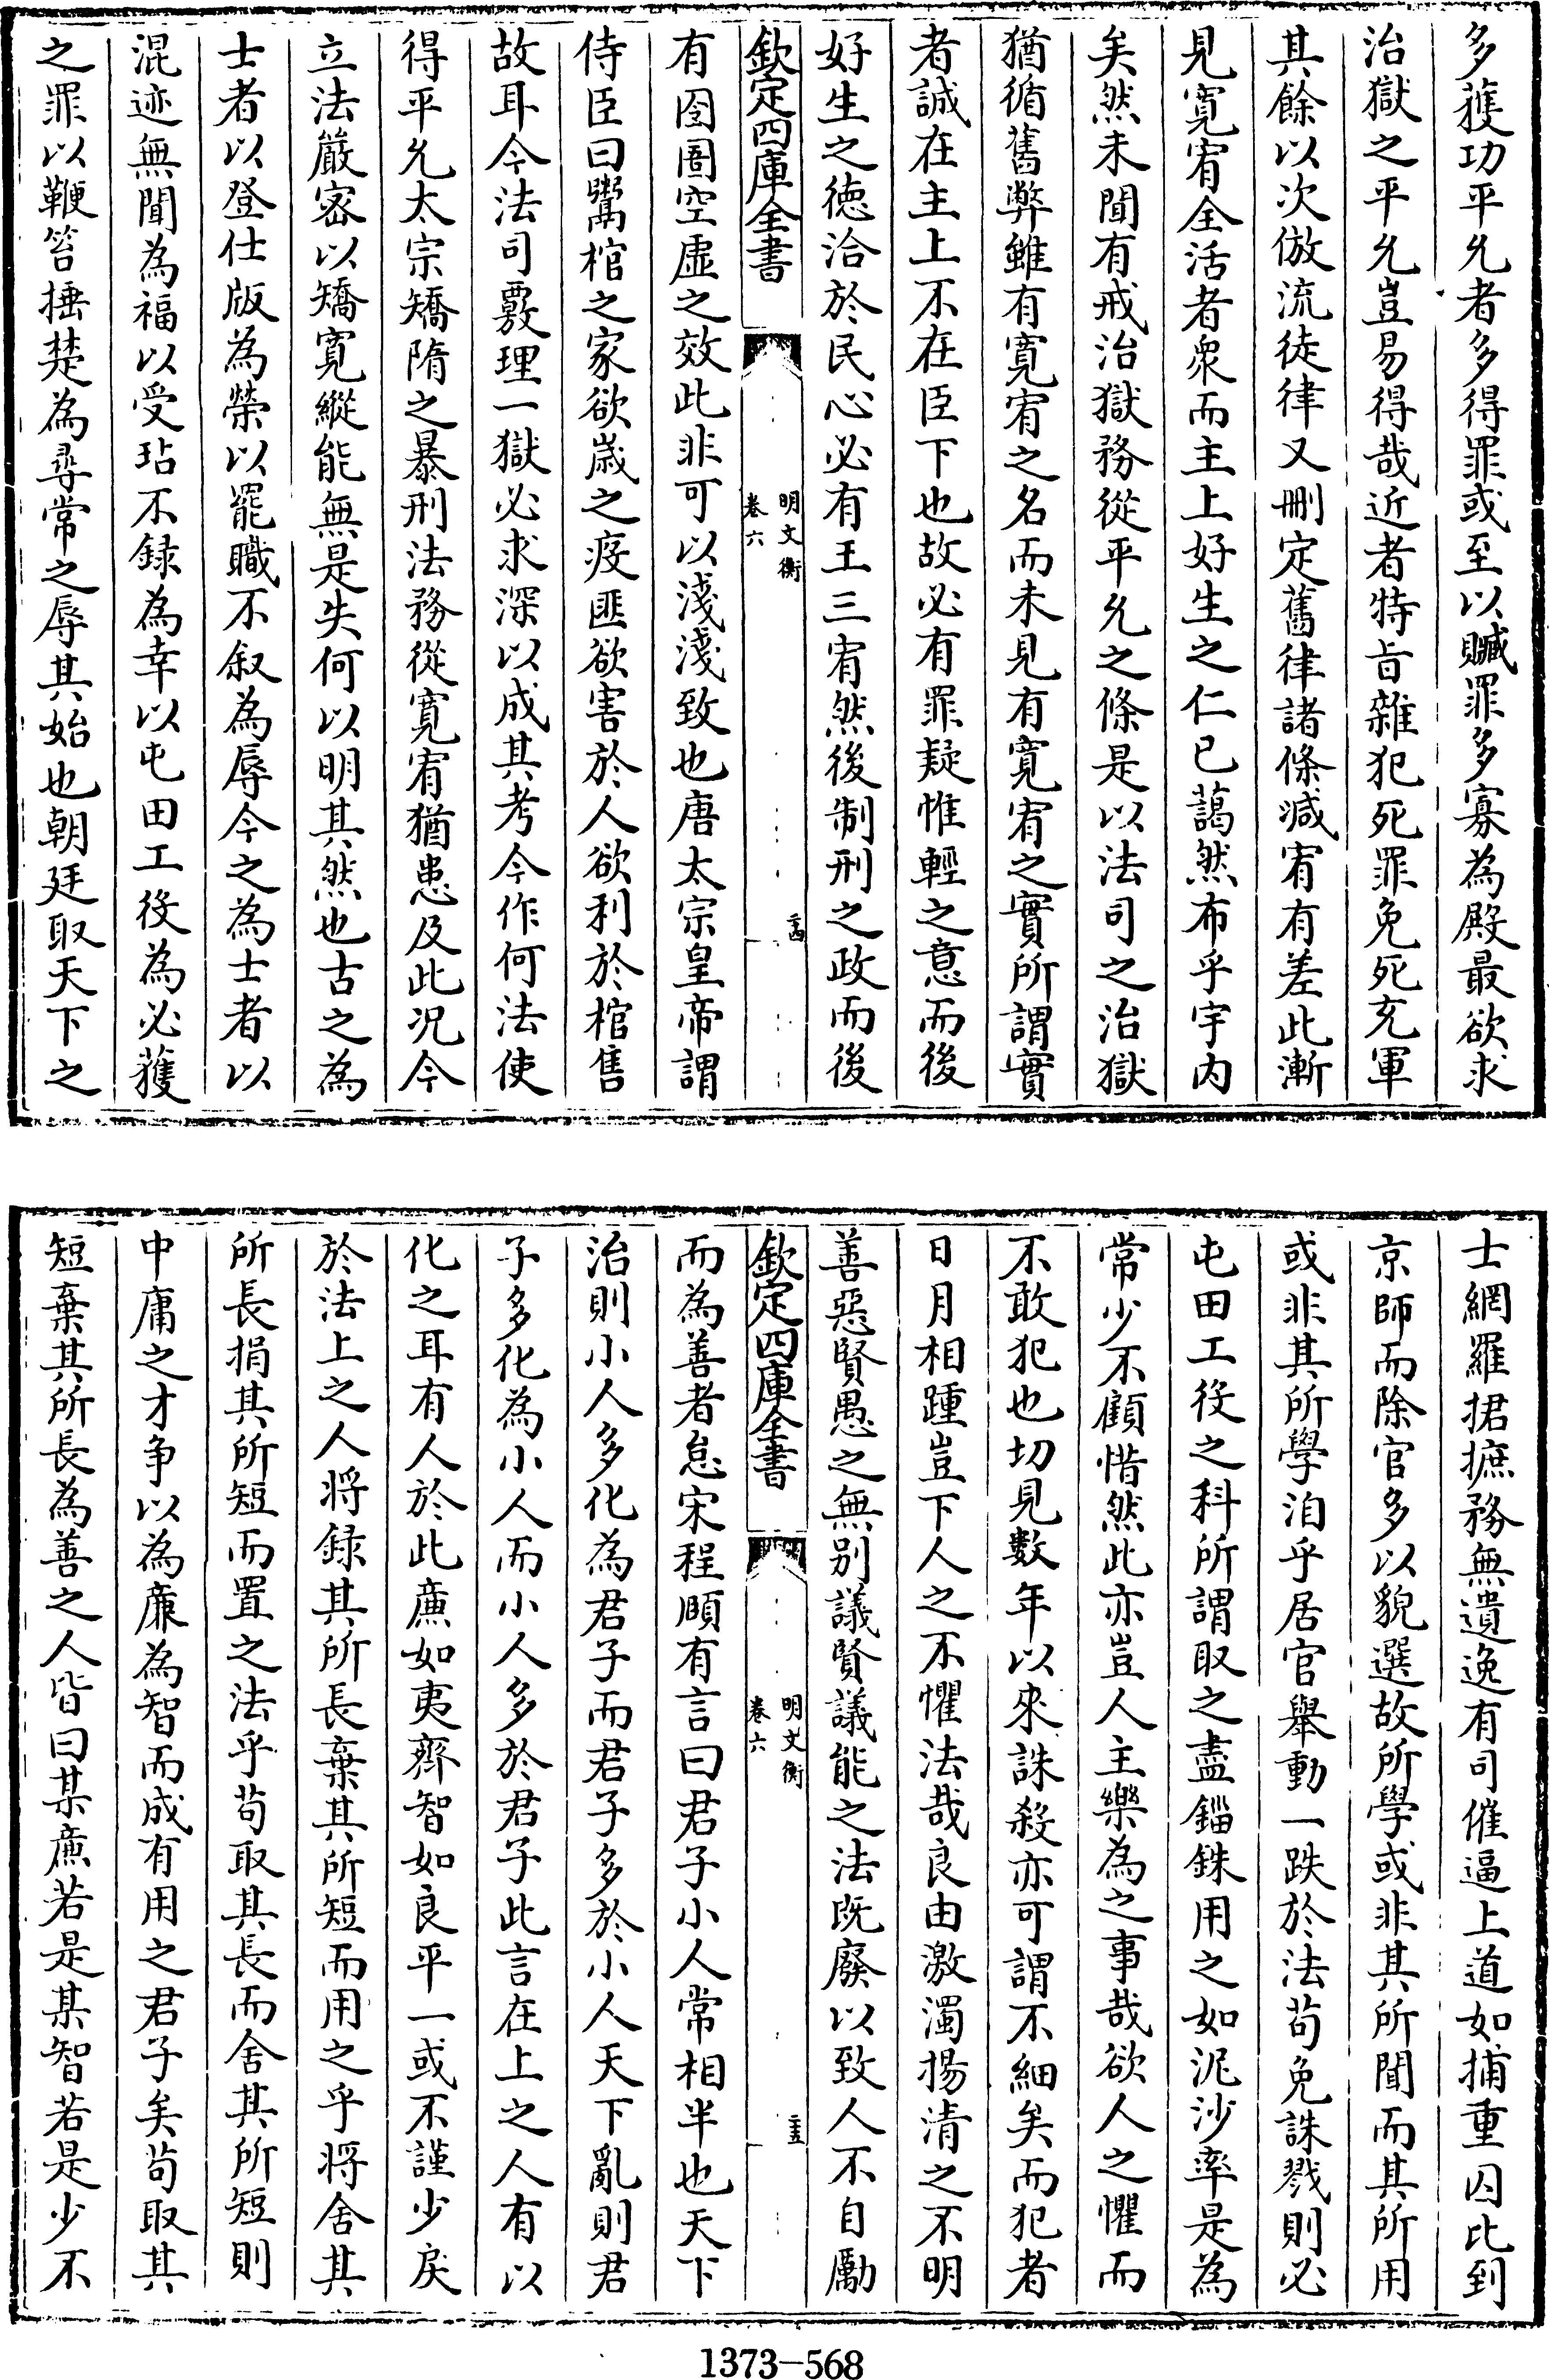 多獲功平允者多得罪或至以贓罪多寡為殿最欲求
治獄之平允豈易得哉近者特旨雜犯死罪免死充軍
其餘以次倣流徒律又刪定舊律諸條減宥有差此漸
見寛宥全活者衆而主上好生之仁已藹然布乎宇内
矣然未聞有戒治獄務從平允之條是以法司之治獄
猶循舊弊雖有寛宥之名而未見有寛宥之實所謂實
者誠在主上不在臣下也故必有罪疑惟輕之意而後
好生之徳洽於民心必有王三宥然後制刑之政而後
欽定四庫全書
明文衡
卷六
二十四
有囹圄空虛之效此非可以淺淺致也唐太宗皇帝謂
侍臣曰鬻棺之家欲嵗之疫匪欲害於人欲利於棺售
故耳今法司覈理一獄必求深以成其考今作何法使
得平允太宗矯隋之暴刑法務從寛宥猶患及此况今
立法嚴宻以矯寛縱能無是失何以明其然也古之為
士者以登仕版為榮以罷職不叙為辱今之為士者以
混迹無聞為福以受玷不録為幸以屯田工役為必獲
之罪以鞭笞捶楚為尋常之辱其始也朝廷取天下之
士網羅捃摭務無遺逸有司催逼上道如捕重囚比到
京師而除官多以貌選故所學或非其所聞而其所用
或非其所學洎乎居官舉動一跌於法苟免誅戮則必
屯田工役之科所謂取之盡錙銖用之如泥沙率是為
常少不顧惜然此亦豈人主樂為之事哉欲人之懼而
不敢犯也切見數年以來誅殺亦可謂不細矣而犯者
日月相踵豈下人之不懼法哉良由激濁揚清之不明
善惡賢愚之無別議賢議能之法既廢以致人不自勵
欽定四庫全書
明文衡
卷六
二十五
而為善者怠宋程頤有言曰君子小人常相半也天下
治則小人多化為君子而君子多於小人天下亂則君
子多化為小人而小人多於君子此言在上之人有以
化之耳有人於此廉如夷齊智如良平一或不謹少戾
於法上之人將録其所長棄其所短而用之乎將舍其
所長捐其所短而置之法乎苟取其長而舍其所短則
中庸之才爭以為廉為智而成有用之君子矣苟取其
短棄其所長為善之人皆曰某廉若是某智若是少不
1373—568